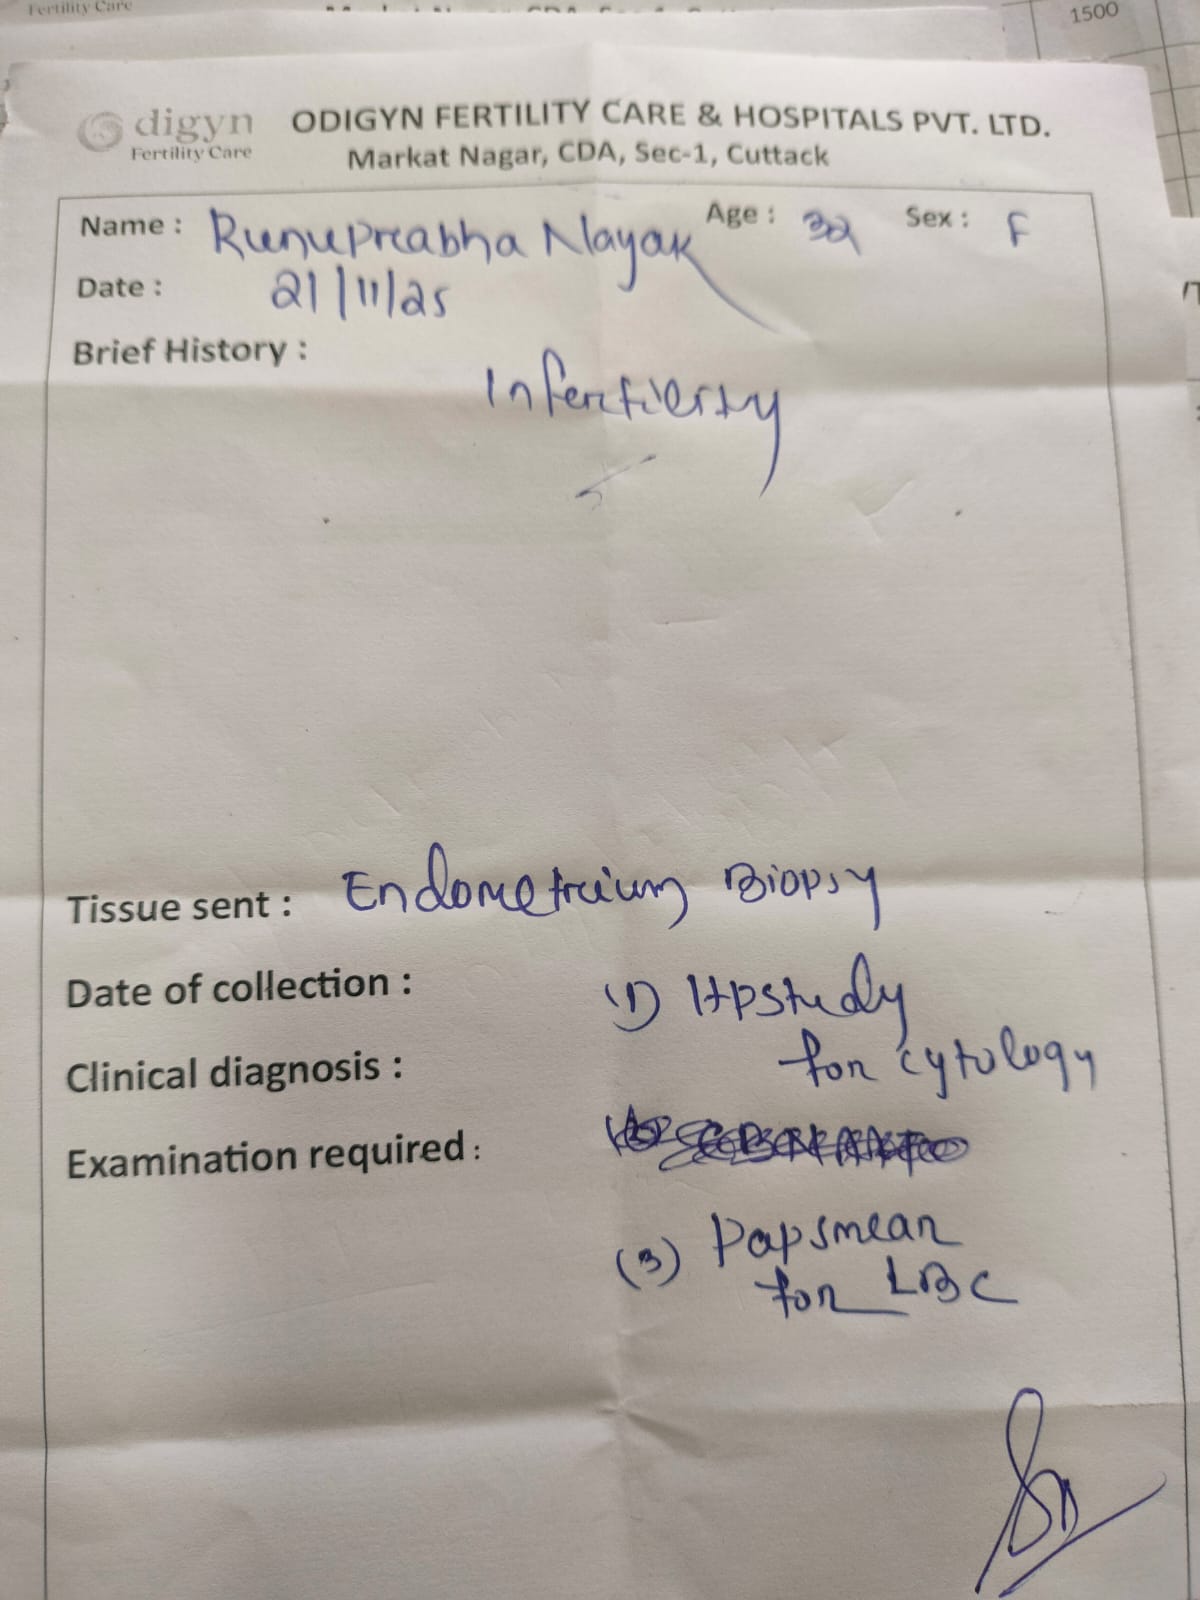 Fertility Care
1500
digyn
Fertility Care
ODIGYN FERTILITY CARE & HOSPITALS PVT. LTD.
Markat Nagar, CDA, Sec-1, Cuttack
Name : Runuprabha Nayak Age : 32 Sex : F
Date : 21/11/25
Brief History :
Infertility
Tissue sent : Endometrium Biopsy
Date of collection :
(1) Hpstudy
for cytology
Clinical diagnosis :
Examination required :
(3) Papsmear
for LBC